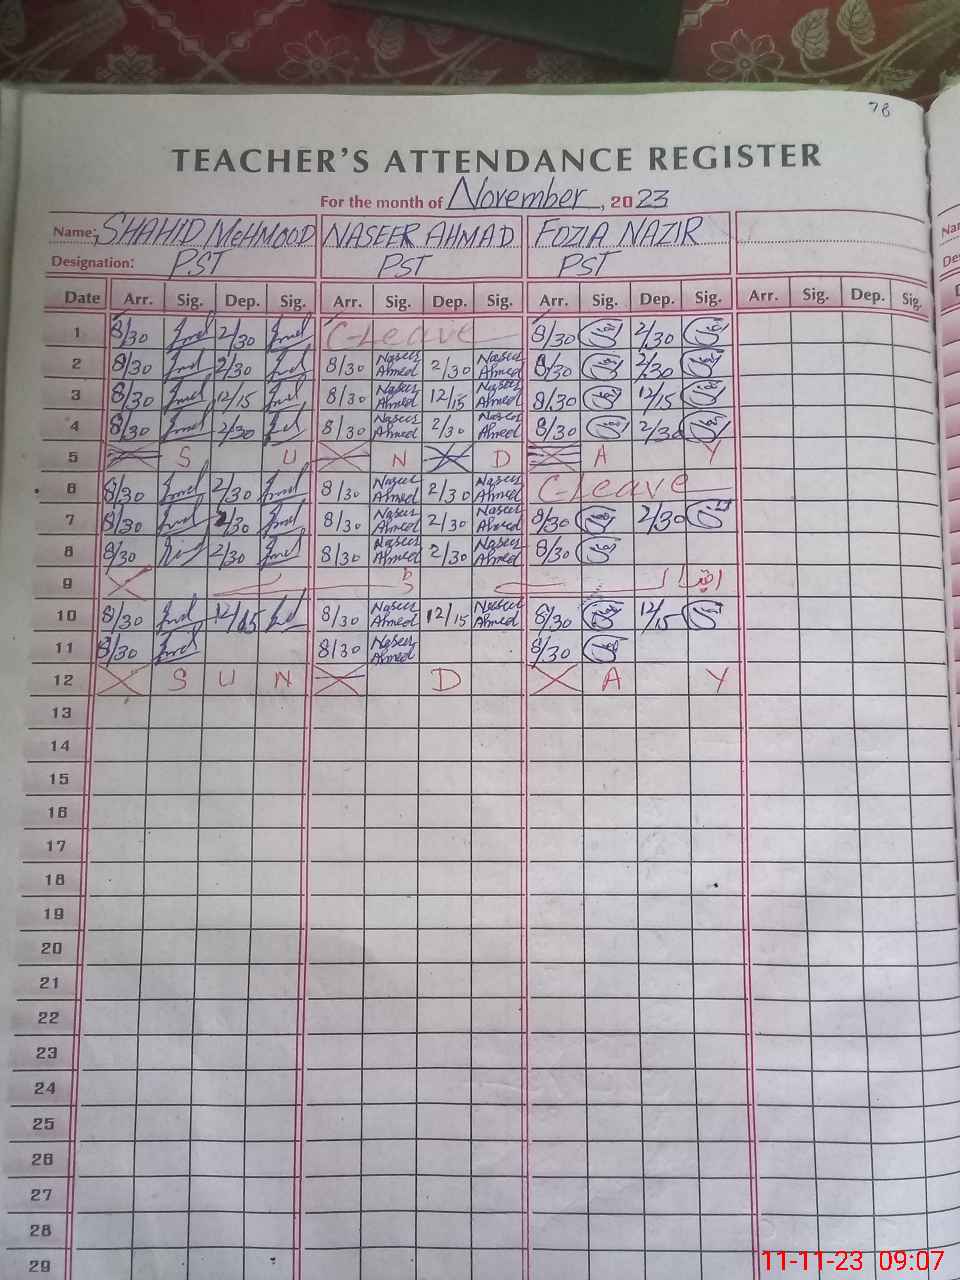 78
TEACHER'S ATTENDANCE REGISTER
For the month of November, 2023
Name: SHAHID MeHMOOD NASEER AHMAD FOZIA NAZIR
Designation: PST PST PST
Date Arr. Sig. Dep. Sig. Arr. Sig. Dep. Sig. Arr. Sig. Dep. Sig. Arr. Sig. Dep. Sig.
1 8/30 2/30 C-Leave 8/30 2/30
2 8/30 2/30 8/30 Naseer Ahmed 2/30 Naseer Ahmed 8/30 2/30
3 8/30 12/15 8/30 Naseer Ahmed 12/15 Naseer Ahmed 8/30 12/15
4 8/30 2/30 8/30 Naseer Ahmed 2/30 Naseer Ahmed 8/30 2/30
5 S U N D A Y
6 8/30 2/30 8/30 Naseer Ahmed 2/30 Naseer Ahmed C-Leave
7 8/30 2/30 8/30 Naseer Ahmed 2/30 Naseer Ahmed 8/30 2/30
8 8/30 2/30 8/30 Naseer Ahmed 2/30 Naseer Ahmed 8/30
9
10 8/30 12/15 8/30 Naseer Ahmed 12/15 Naseer Ahmed 8/30 12/15
11 8/30 8/30 Naseer Ahmed 8/30
12 S U N D A Y
13
14
15
16
17
18
19
20
21
22
23
24
25
26
27
28
29
11-11-23 09:07